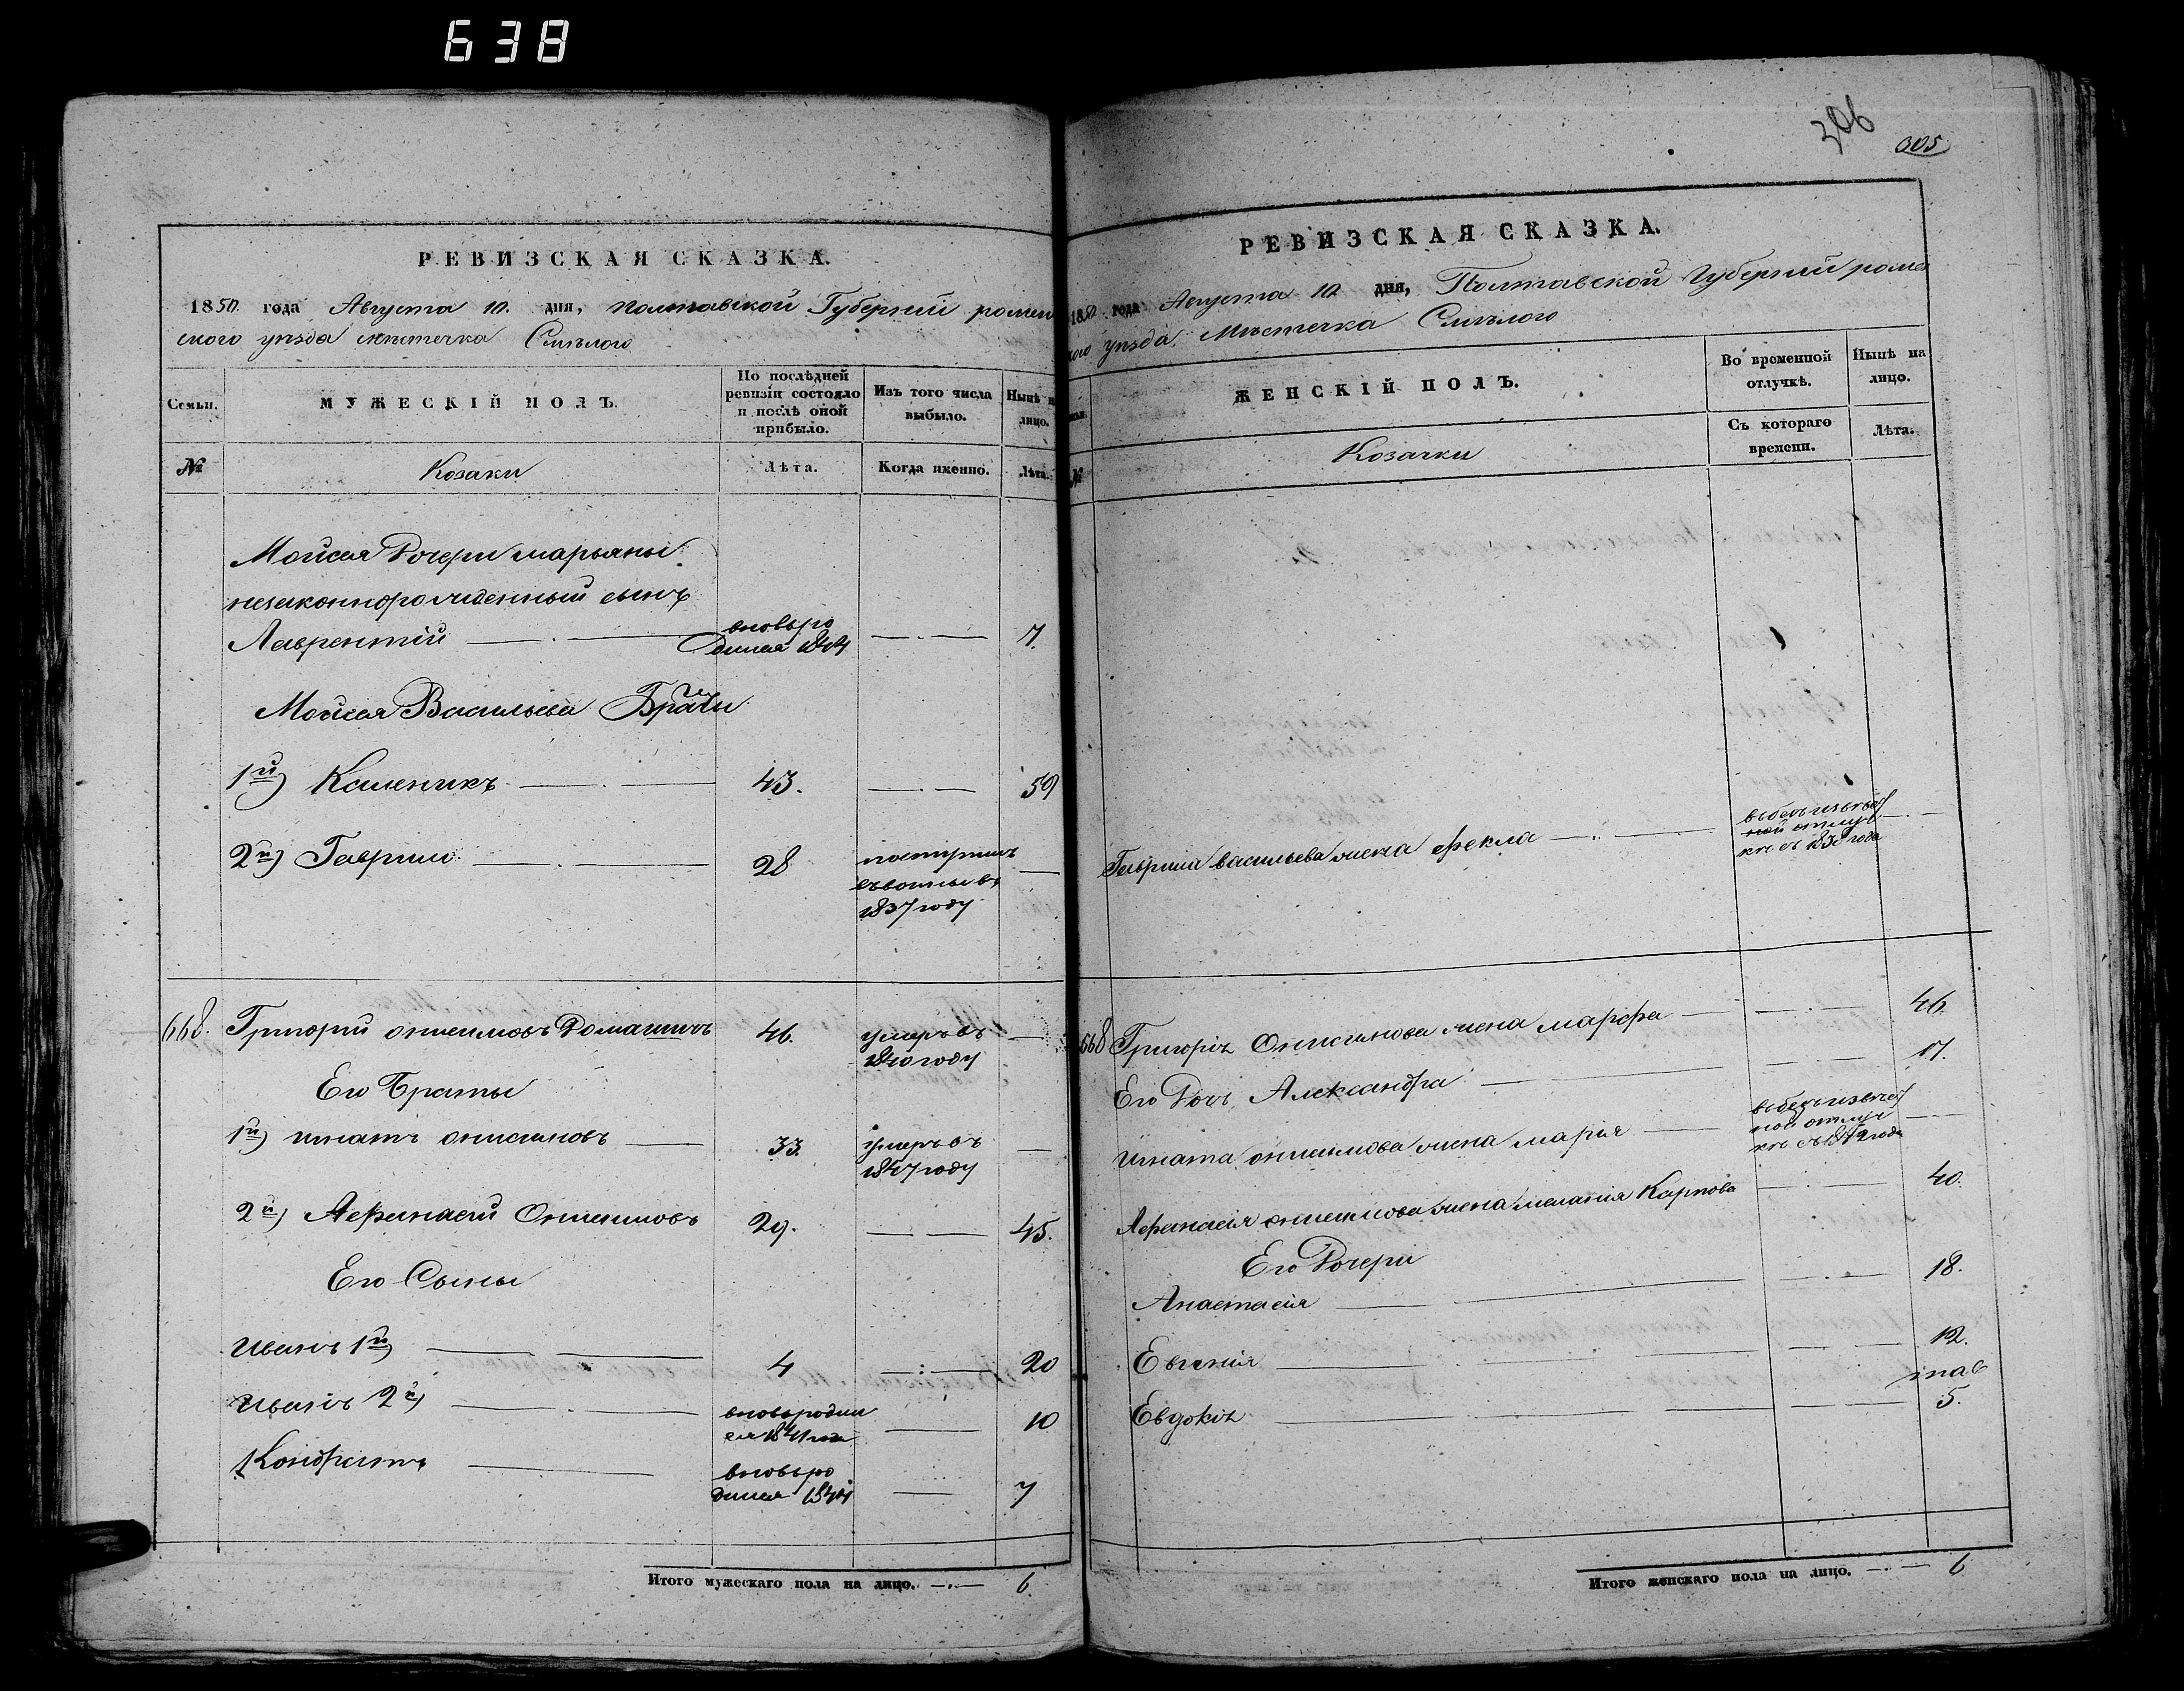 638
РЕВИЗСКАЯ СКАЗКА.
1850 года Августа 10. дня, полтавской Губернии ромен
ского уѣзда мѣстечка Смѣлого
Семьи.
МУЖЕСКІЙ ПОЛЪ.
По послѣдней ревизіи состояло и послѣ оной прибыло.
Изъ того числа выбыло.
Нынѣ н лицо.
№
Козаки
Лѣта.
Когда именно.
Лѣта.
Мойсея Дочери марьяны
незаконнорожденный сынъ
Лаврентій вновьро дился 1844 7.
Мойсея Васильева Браты
1й) Каленикъ 43. 59
2й) Гаврило 28 поступилъ 1837 году
668. Григорий онисимовъ Ромашичъ 46. умеръ въ 1840 году
Его Браты
1й) игнатъ онисимовъ 33. умеръ въ 1847 году
2й) Афанасий Онисимовъ 29. 45.
Его Сыны
Иванъ 1й) 4 20
Иванъ 2й) вновьродил ся 1841 10
Кондратъ вновьро дился 1844 7
Итого мужескаго пола на лицо. 6
306
305
РЕВИЗСКАЯ СКАЗКА.
1850 года Августа 10 дня, Полтавской Губернии ромен
кого уѣзда Мѣстечка Смѣлого
ЖЕНСКІЙ ПОЛЪ.
Во временной отлучкѣ.
Нынѣ на лицо.
№
Козачки
Съ котораго времени.
Лѣта.
Гаврила васильева жена Фекла
668 Григорія Онисимова жена марфа 46.
Его Дочь Александра 17.
игната онисимова жена марія
Афанасія онисимова жена меланія Карпова 40.
Его Дочери
Анастасія 18.
Евгенія 12.
Евдокія 5.
Итого женскаго пола на лицо. 6